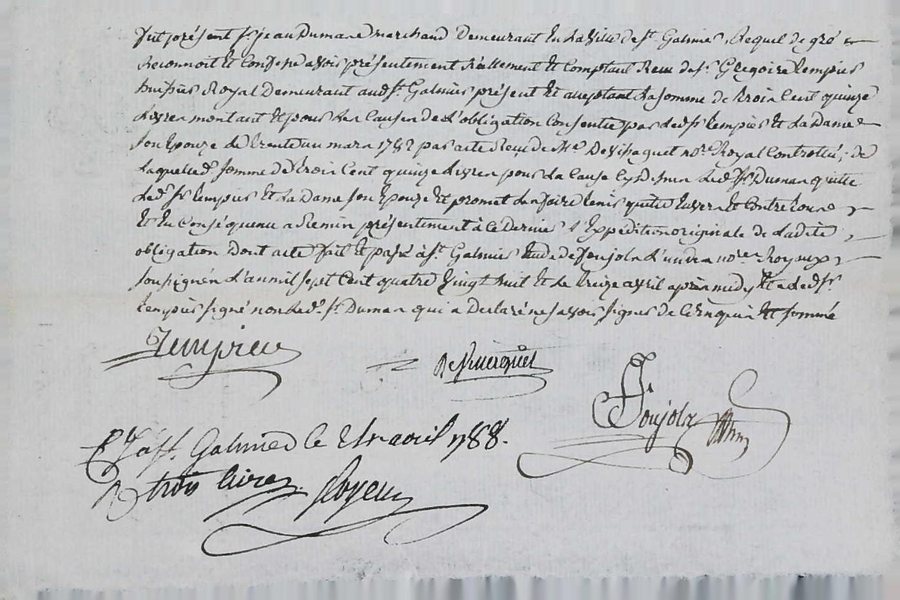 fut présent sr jean Dumas marchand Demeurant En La Ville de st. Galmier Lequel de gré
Reconnoit Et Confesse avoir présentement Réellement Et Comptant Reçu de sr. Gregoire Lempier
huissier Royal Demeurant aud. st. Galmier présent Et acceptant La somme de trois Cent quinze
Livres montant Et pour Les Causes de L'obligation Consentie par Led. sr Lempier Et La Dame
son Epouze Le trente un mars 1782 par acte Reçu de Me. nore. Royal Controllé, de
Laquelle somme de trois Cent quinze Livres pour La Cause Led. sr Dumas quitte
Led. sr Lempier Et La Dame son Epouze Et promet Les faire tenir quitte Envers Et Contre tous
Et En Conséquence a Remis présentement à Ce Dernier L'Expédition originale de Ladite
obligation Dont acte fait Et passé à st. Galmier Etude de Poujolz L'un des nores. Royaux
soussignés L'an mil sept Cent quatre vingt huit Et Le treize avril après midy Et a Led. sr
Lempier signé non Led. sr. Dumas qui a Déclaré ne savoir signer de Ce Enquis Et sommé
Lempier
Poujolz
st. Galmier le avril 1788.
trois livres